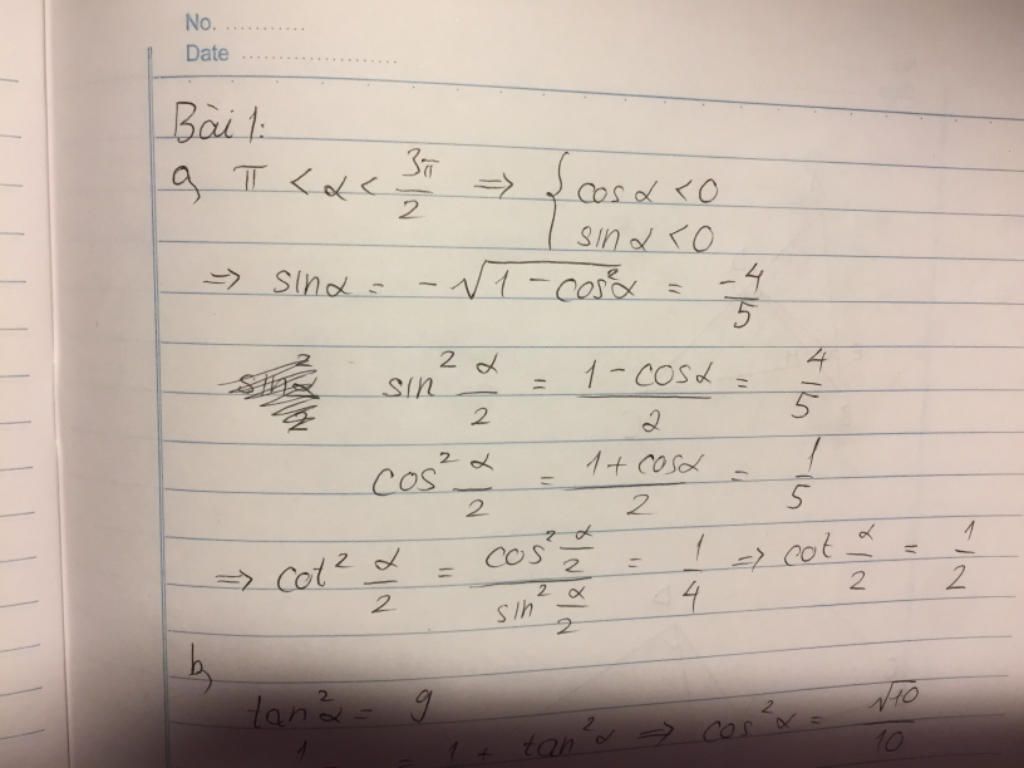 No. ...........
Date .....................
Bài 1:
a, π < α < 3π/2 ⇒ { cosα < 0
sinα < 0
⇒ sinα = -√(1 - cos²α) = -4/5
sin² α/2 = (1 - cosα)/2 = 4/5
cos² α/2 = (1 + cosα)/2 = 1/5
⇒ cot² α/2 = (cos² α/2)/(sin² α/2) = 1/4 ⇒ cot α/2 = 1/2
b,
tan²α = 9
1 = 1 + tan²α ⇒ cos²α = √10/10